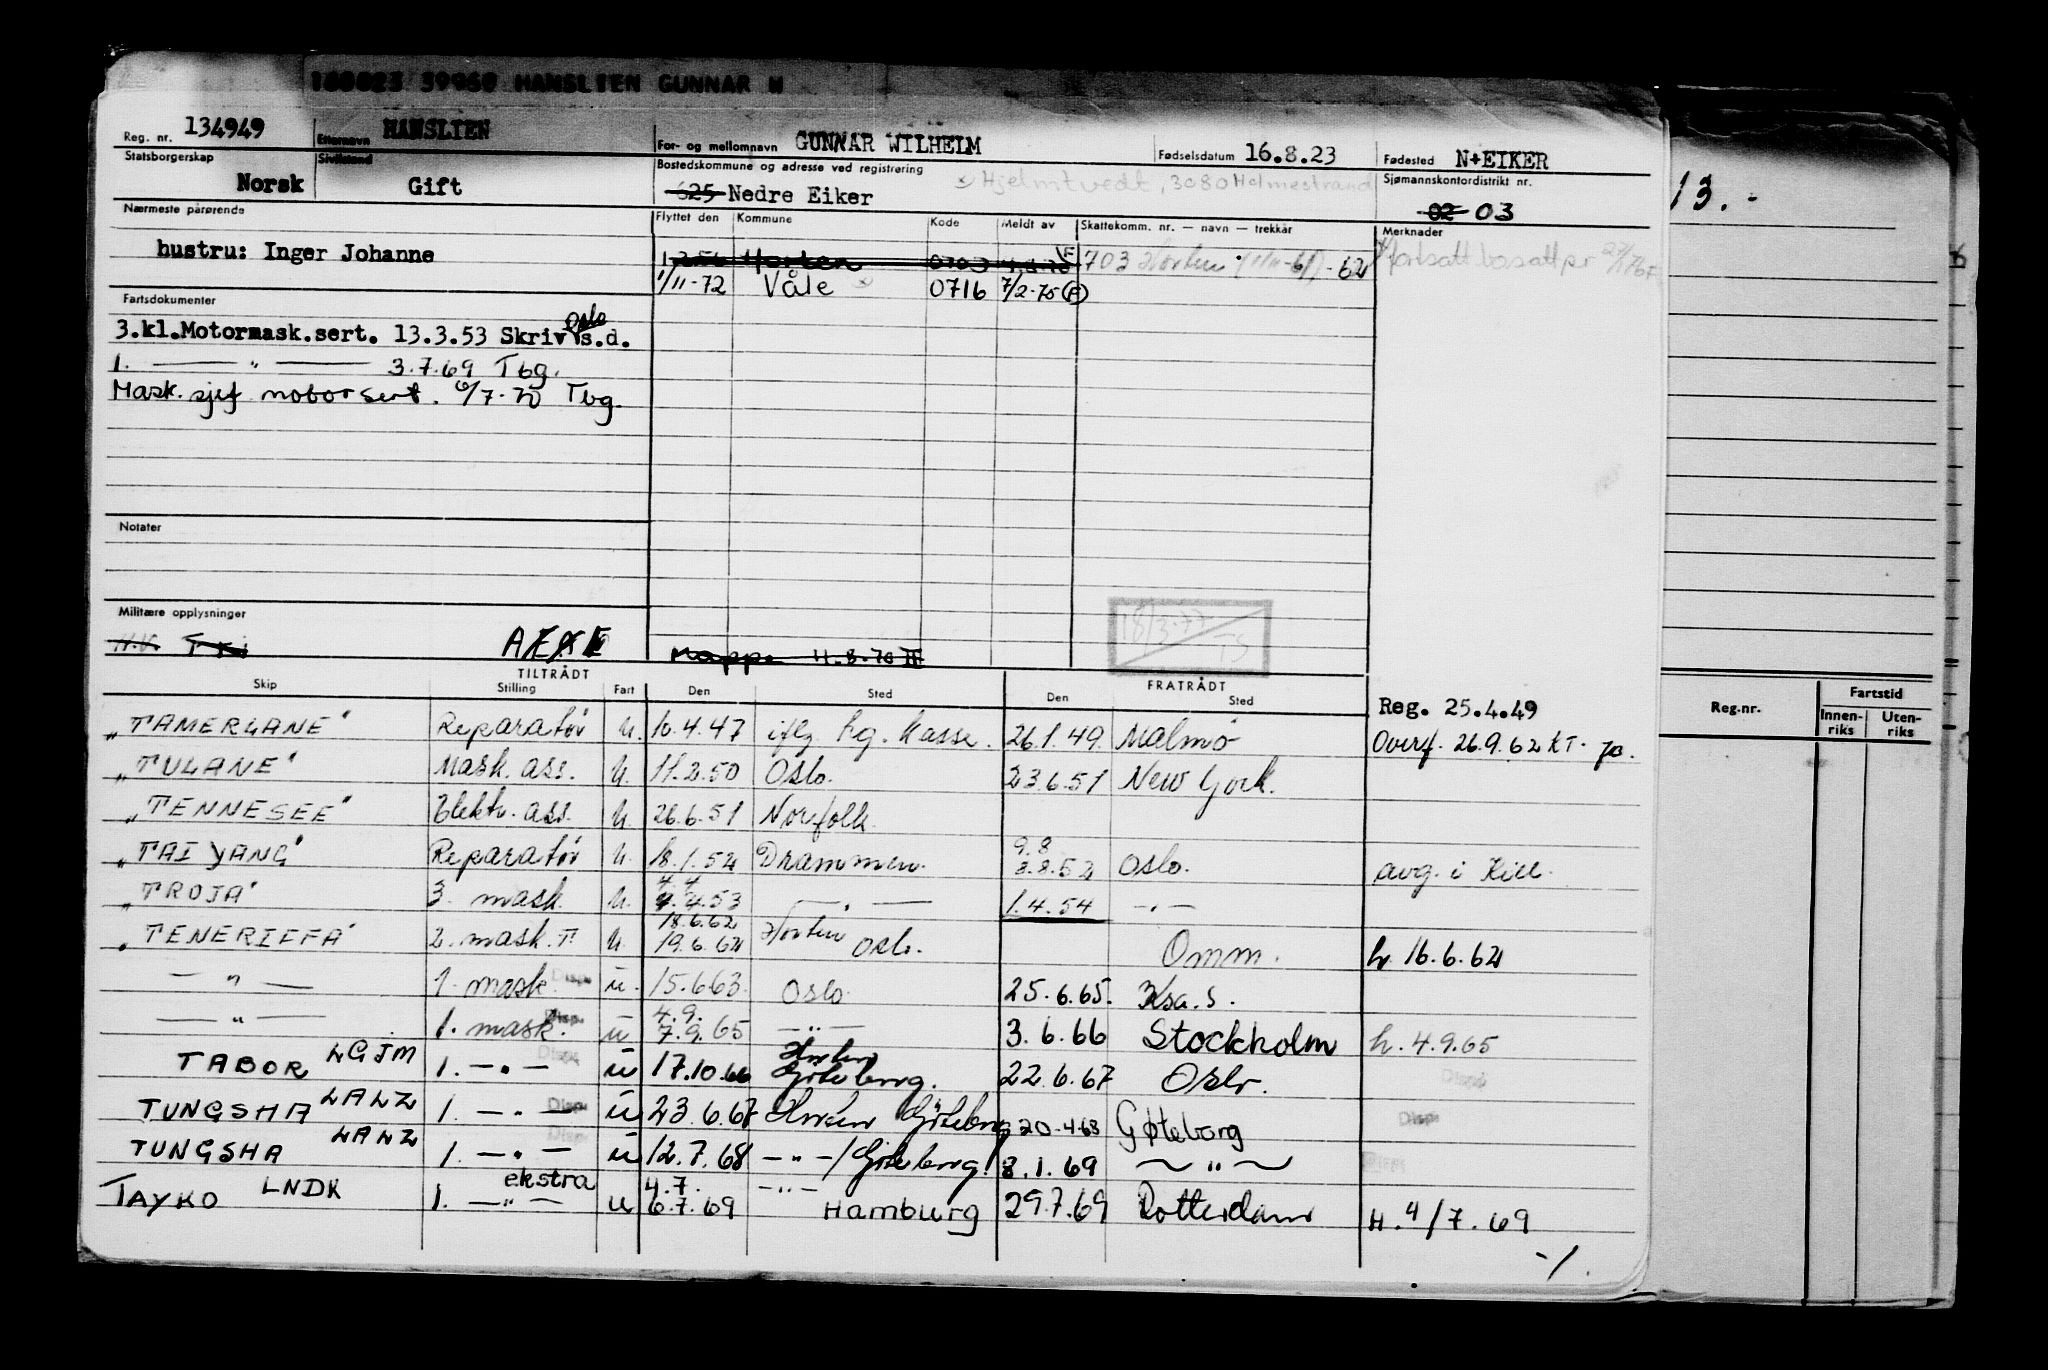 160823 39960 HANSLIEN GUNNAR W
Reg. nr. 134949 Etternavn HANSLIEN For- og mellomnavn GUNNAR WILHELM Fødselsdatum 16.8.23 Fødested N+EIKER
Statsborgerskap Norsk Sivilstand Gift Bostedskommune og adresse ved registrering Hjelmtvedt, 3080 Holmestrand Sjømannskontordistrikt nr.
625 Nedre Eiker 02 03
13.-
Nærmeste pårørende Flyttet den Kommune Kode Meldt av Skattekomm. nr. — navn — trekkår Merknader
hustru: Inger Johanne Horten 0703 703 Horten - 62 fortsatt bosatt pr
1/11-72 Våle 0716 7/2-75 (F)
Fartsdokumenter
3.kl.Motormask.sert. 13.3.53 Skriv s.d. Oslo
1. — " — 3.7.69 Tbg.
Mask. sjef motorsert. 6/7-70 Tbg.
Notater
Militære opplysninger
Mappe 11.8.70
18/3-77 TS
TILTRÅDT FRATRÅDT
Skip Stilling Fart Den Sted Den Sted
Reg. 25.4.49
"TAMERLANE" Reparatør u. 10.4.47 iflg. hg. kasse. 26.1.49. Malmö Overf. 26.9.62 KT.
"TULANE" Mask. ass. u. 11.2.50 Oslo. 23.6.51 New York.
"TENNESEE" Elektr. ass. u. 26.6.51 Norfolk.
"TAI YANG" Reparatør u. 18.1.52 Drammen. 9.8. 3.8.52 Oslo. avg. i
"TROJA" 3. mask. u. 4.4. 4.4.53 — " — 1.4.54 — " —
"TENERIFFA" 2. mask. T. u. 18.6.62 19.6.62 Horten Oslo. Omm. h. 16.6.62
— " — 1. mask. Disp. u. 15.6.63. Oslo 25.6.65. Ksa. S.
— " — 1. mask. Disp. u 4.9. 7.9.65 — " — 3.6.66 Stockholm h. 4.9.65
TABOR LGJM 1. — " — Disp. u 17.10.66 Horten Göteborg. 22.6.67 Oslo.
TUNGSHA LALZ 1. — " — Disp. u 23.6.67 Horten Göteborg 20.4.68 Gøteborg Disp.
TUNGSHA LALZ 1. — " — Disp. u 12.7.68 — " — / Göteborg. 8.1.69 — " —
TAYKO LNDK 1. — " — ekstra u 4.7. 6.7.69 — " — Hamburg 29.7.69 Rotterdam H. 4/7.69
-/.
Reg.nr. Fartstid
Innenriks Utenriks